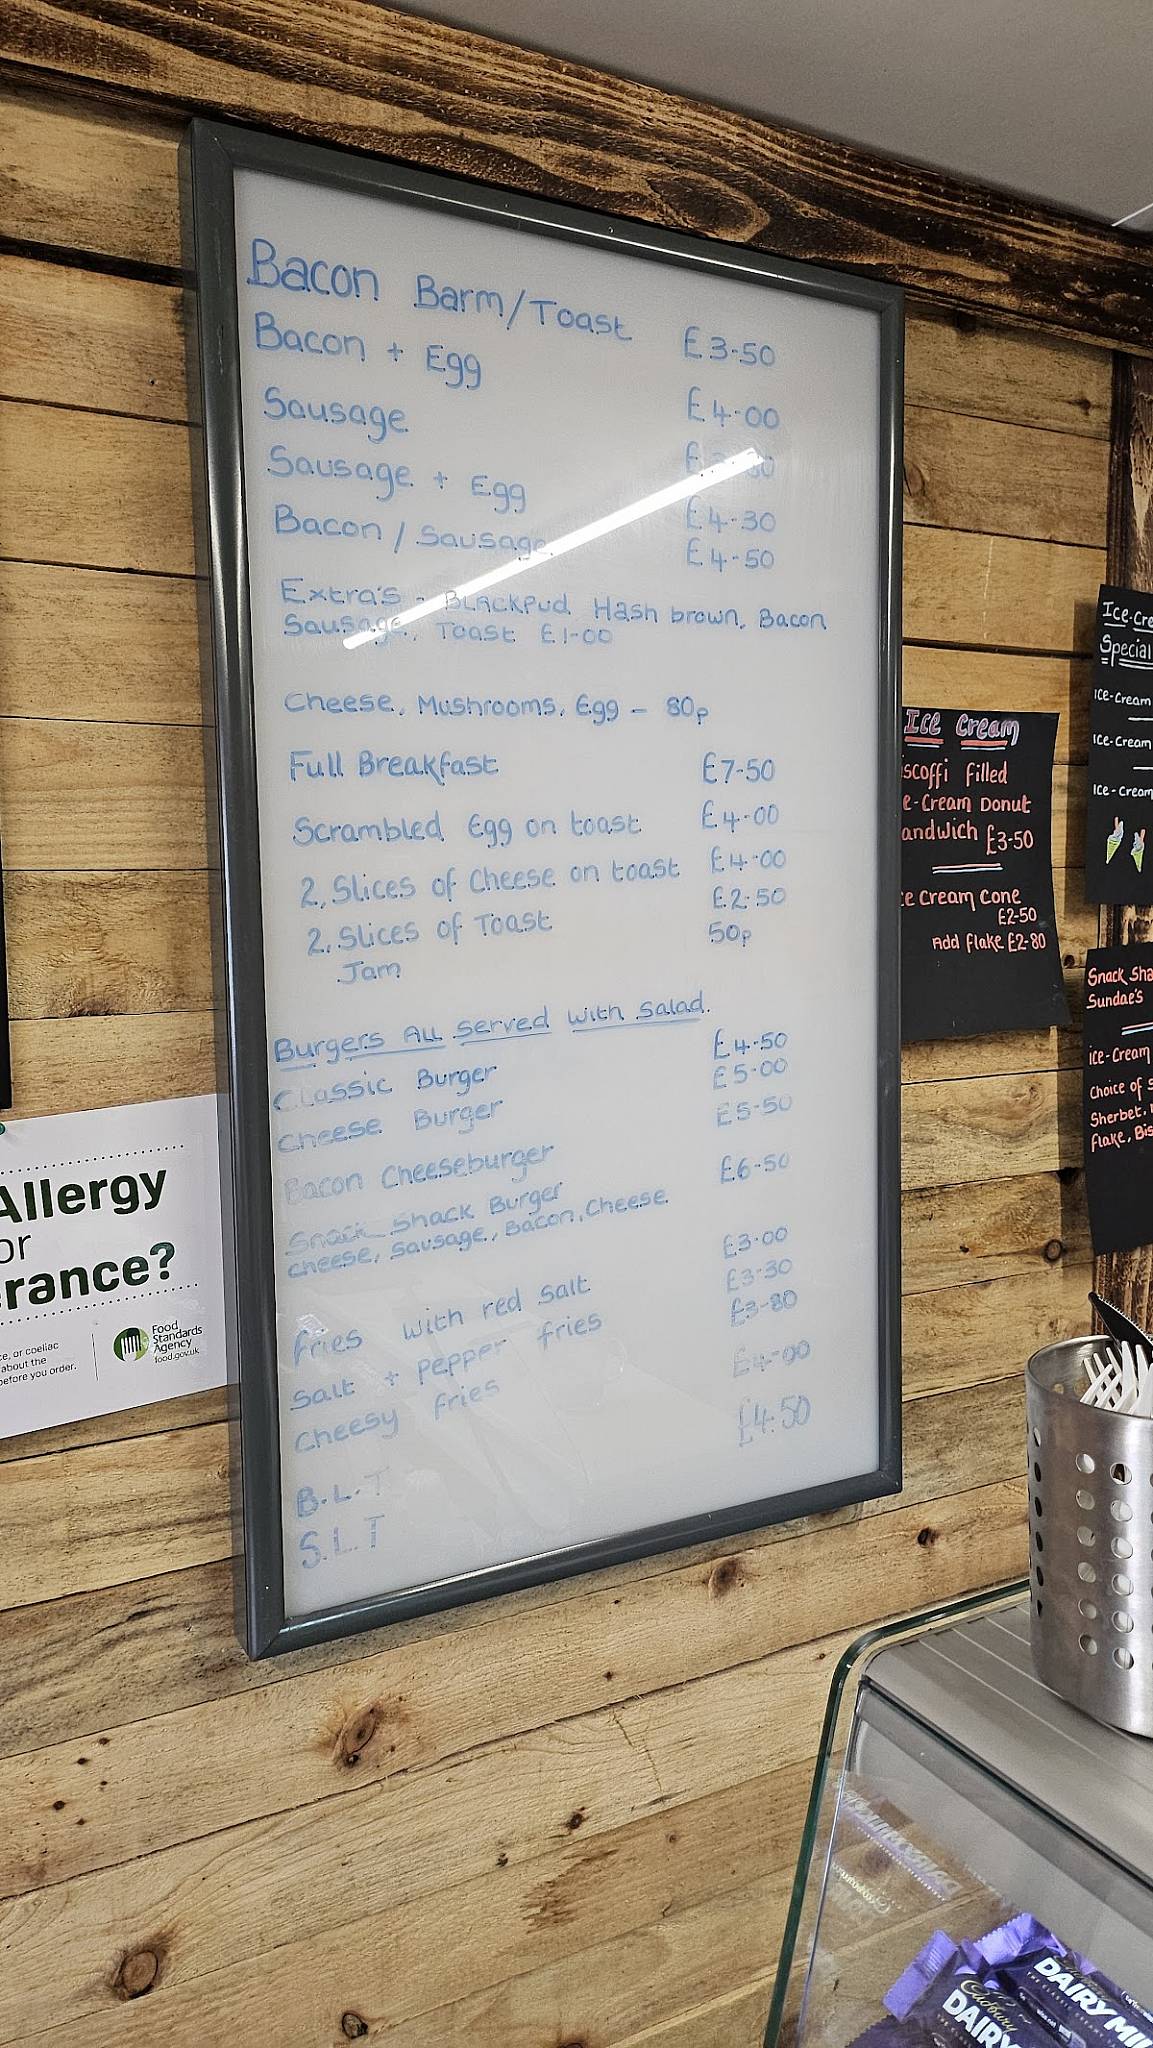 Bacon Barm/Toast £3-50
Bacon + Egg £4-00
Sausage
Sausage + Egg £4-30
Bacon / Sausage £4-50
Extra's - Blackpud, Hash brown, Bacon
Sausage, Toast £1-00
Cheese, Mushrooms, Egg - 80p
Full Breakfast £7-50
Scrambled Egg on toast £4-00
2, Slices of Cheese on toast £4-00
2, Slices of Toast £2-50
Jam 50p
Burgers All Served with Salad.
Classic Burger £4-50
Cheese Burger £5-00
Bacon Cheeseburger £5-50
Snack Shack Burger £6-50
Cheese, Sausage, Bacon, Cheese
fries with red salt £3-00
Salt + pepper fries £3-30
Cheesy fries £3-80
B.L.T £4-00
S.L.T £4.50
Ice Cream
iscoffi filled
e-Cream Donut
andwich £3-50
ce Cream Cone
£2-50
Add flake £2-80
Ice-Cre
Special
Ice-Cream
Ice-Cream
Ice-Cream
Snack Sha
Sundae's
ice-Cream
Choice of S
Sherbet,
flake, Bis
Allergy
or
erance?
ce, or coeliac
about the
before you order.
Food
Standards
Agency
food.gov.uk
Cadbury
DAIRY
DAIRY MI